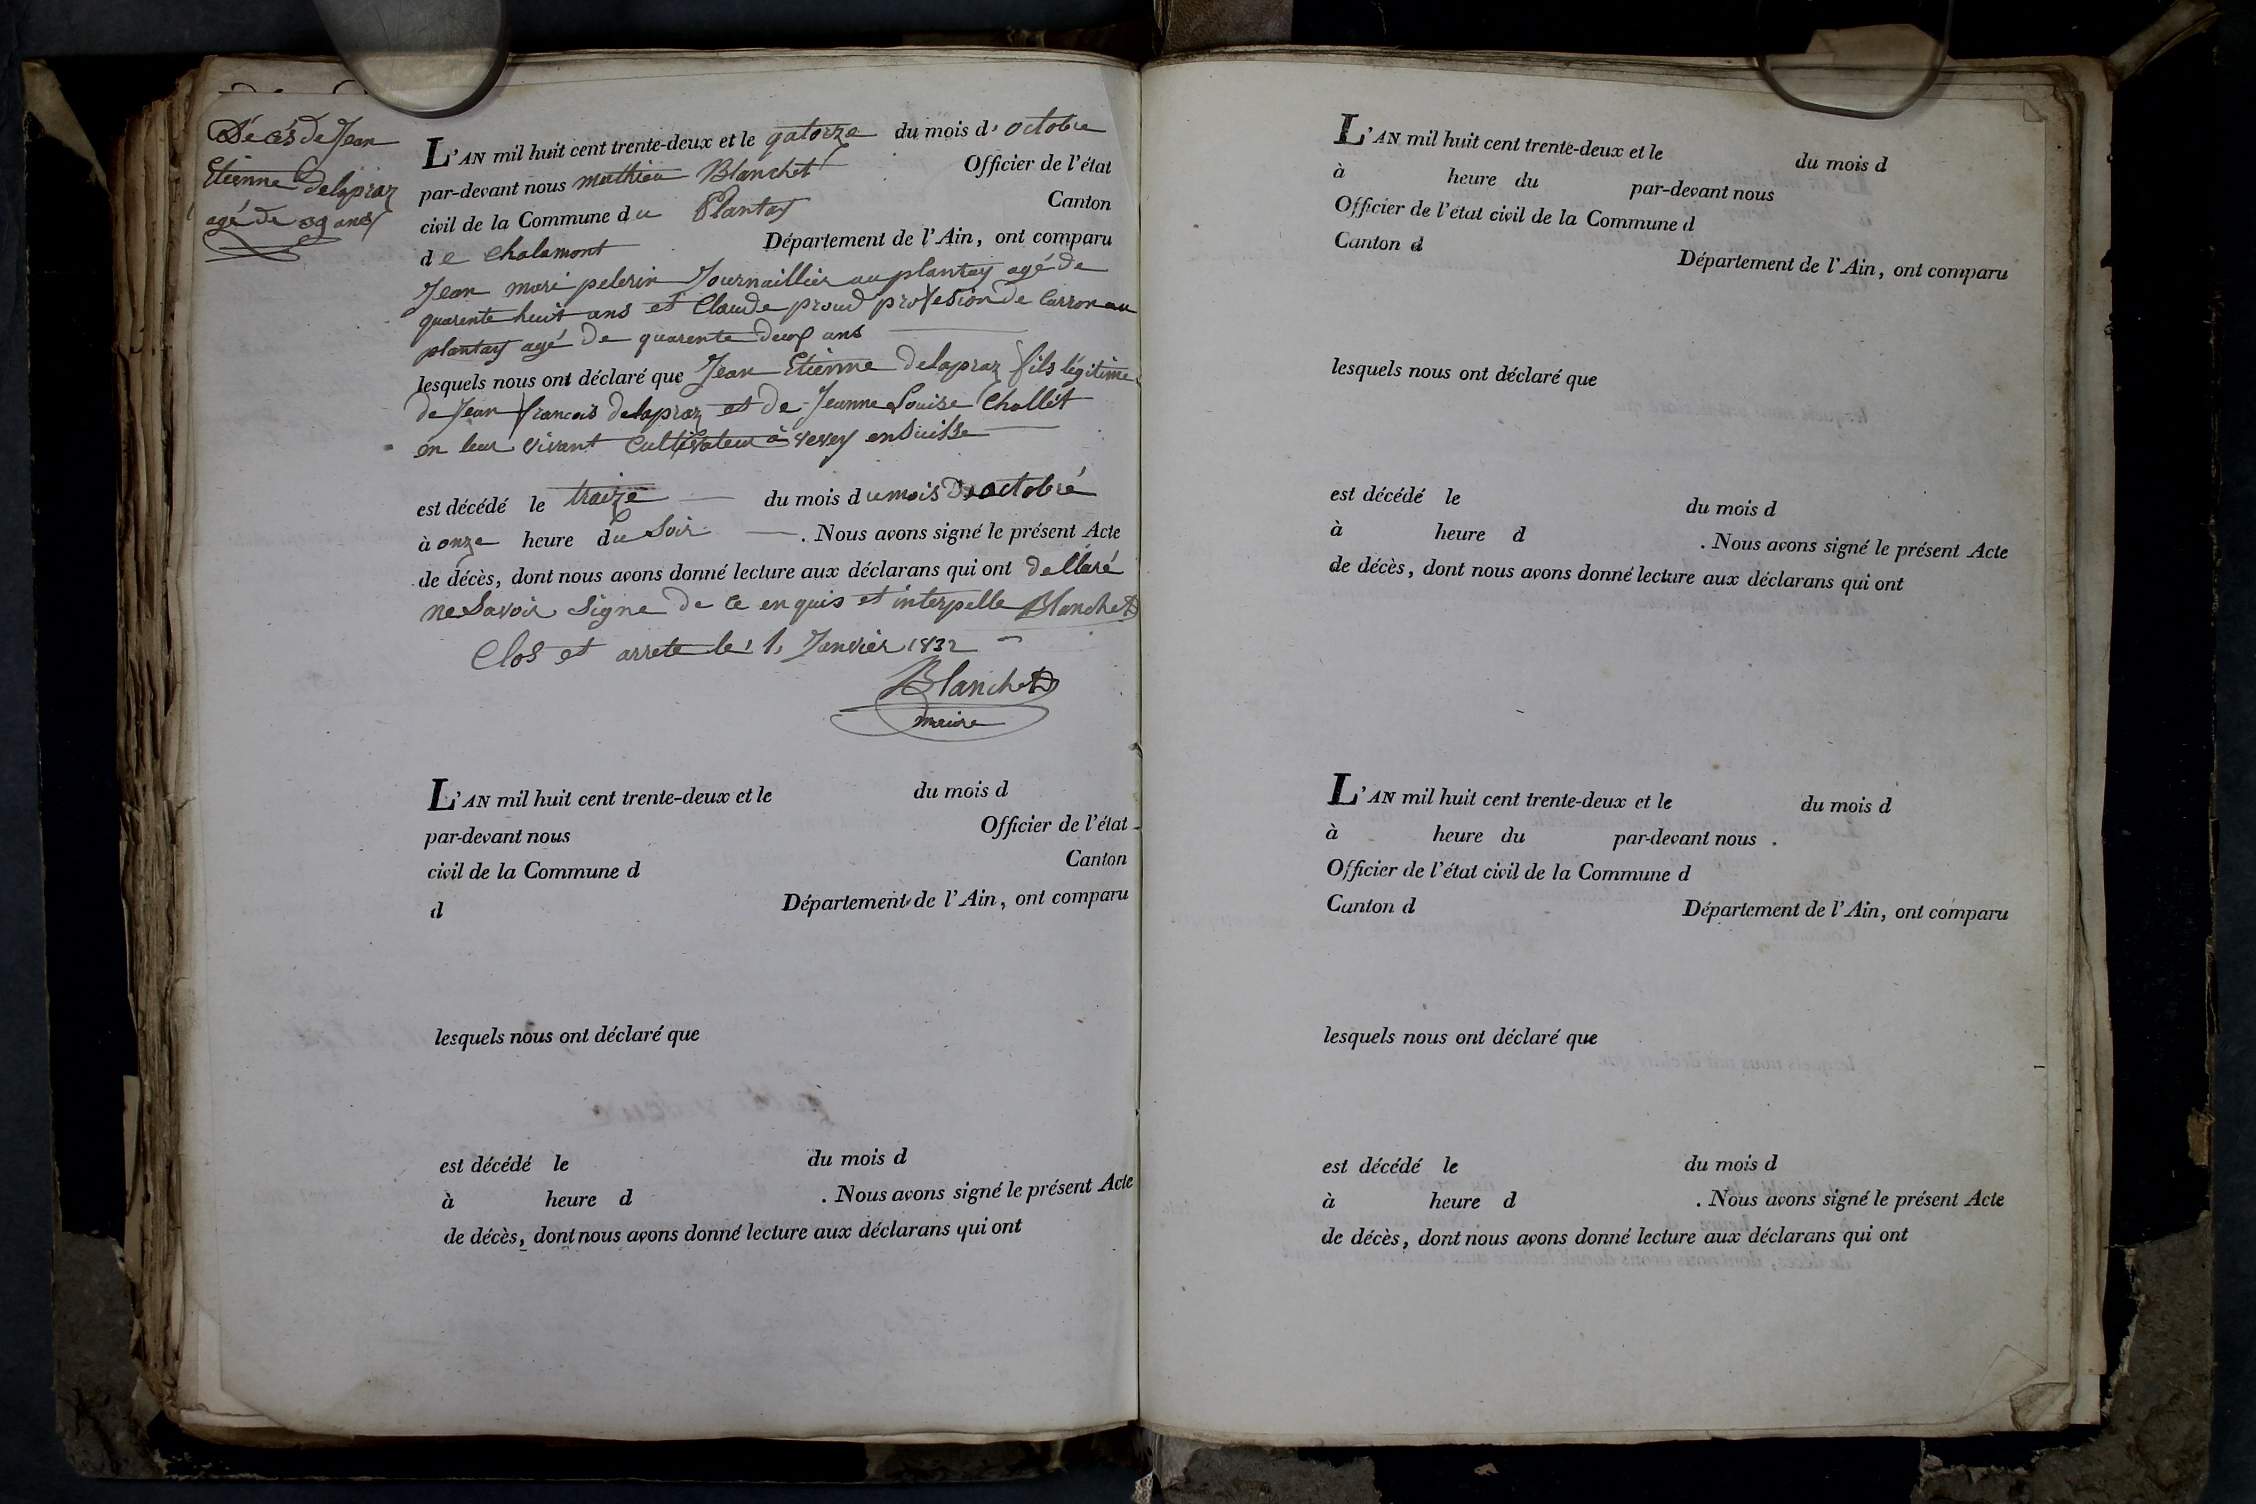 Décès de Jean
Etienne Delapraz
agé de 39 ans
L'AN mil huit cent trente-deux et le qatorze du mois d'octobre
par-devant nous mathieu Blanchet Officier de l'état
civil de la Commune du Plantay Canton
de Chalamont Département de l'Ain, ont comparu
Jean mari pelerin Journaillier au plantay agé de
quarente huit ans et Claude proud profesion de Carron au
plantay agé de quarente deux ans
lesquels nous ont déclaré que Jean Etienne Delapraz fils légitime
de Jean francois delapraz et de Jeanne Louise Chollét
en leur vivant Cultivateur à vevey en Suisse
est décédé le traize du mois du mois D'octobre
à onze heure du Soir . Nous avons signé le présent Acte
de décès, dont nous avons donné lecture aux déclarans qui ont dellaré
ne Savoir Signe de ce enquis et interpelle Blanchet
Clos et arrete le 1, Janvier 1832
Blanchet
maire
L'AN mil huit cent trente-deux et le du mois d
par-devant nous Officier de l'état
civil de la Commune d Canton
d Département de l'Ain, ont comparu
lesquels nous ont déclaré que
est décédé le du mois d
à heure d . Nous avons signé le présent Acte
de décès, dont nous avons donné lecture aux déclarans qui ont
L'AN mil huit cent trente-deux et le du mois d
à heure du par-devant nous
Officier de l'état civil de la Commune d
Canton d Département de l'Ain, ont comparu
lesquels nous ont déclaré que
est décédé le du mois d
à heure d . Nous avons signé le présent Acte
de décès, dont nous avons donné lecture aux déclarans qui ont
L'AN mil huit cent trente-deux et le du mois d
à heure du par-devant nous .
Officier de l'état civil de la Commune d
Canton d Département de l'Ain, ont comparu
lesquels nous ont déclaré que
est décédé le du mois d
à heure d . Nous avons signé le présent Acte
de décès, dont nous avons donné lecture aux déclarans qui ont